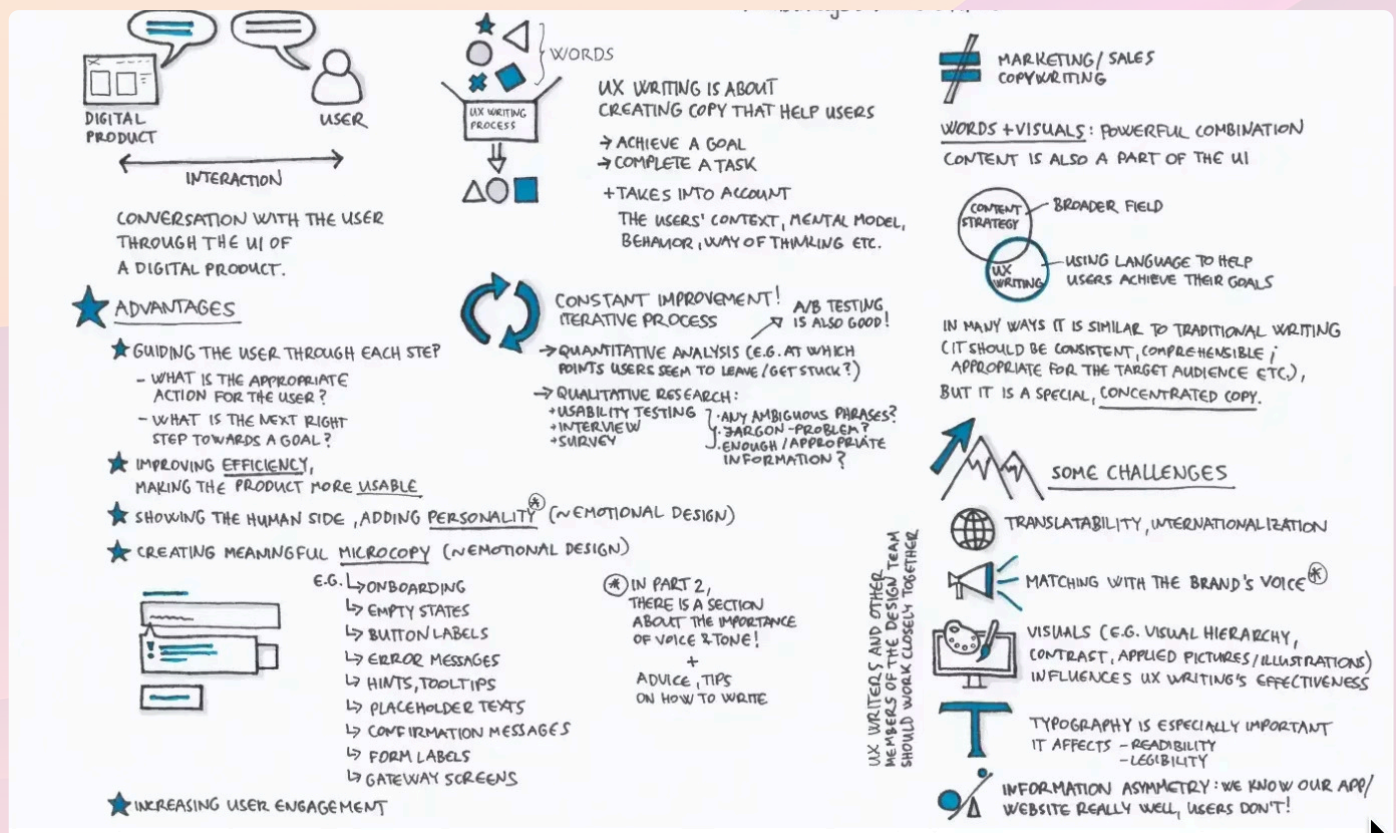 DIGITAL
PRODUCT
USER
INTERACTION
CONVERSATION WITH THE USER
THROUGH THE UI OF
A DIGITAL PRODUCT.
ADVANTAGES
GUIDING THE USER THROUGH EACH STEP
- WHAT IS THE APPROPRIATE
ACTION FOR THE USER?
- WHAT IS THE NEXT RIGHT
STEP TOWARDS A GOAL?
IMPROVING EFFICIENCY,
MAKING THE PRODUCT MORE USABLE
SHOWING THE HUMAN SIDE, ADDING PERSONALITY* (~EMOTIONAL DESIGN)
CREATING MEANINGFUL MICROCOPY (~EMOTIONAL DESIGN)
E.G. ↳ ONBOARDING
↳ EMPTY STATES
↳ BUTTON LABELS
↳ ERROR MESSAGES
↳ HINTS, TOOLTIPS
↳ PLACEHOLDER TEXTS
↳ CONFIRMATION MESSAGES
↳ FORM LABELS
↳ GATEWAY SCREENS
* IN PART 2,
THERE IS A SECTION
ABOUT THE IMPORTANCE
OF VOICE & TONE!
+
ADVICE, TIPS
ON HOW TO WRITE
INCREASING USER ENGAGEMENT
WORDS
UX WRITING
PROCESS
UX WRITING IS ABOUT
CREATING COPY THAT HELP USERS
→ ACHIEVE A GOAL
→ COMPLETE A TASK
+ TAKES INTO ACCOUNT
THE USERS' CONTEXT, MENTAL MODEL,
BEHAVIOR, WAY OF THINKING ETC.
CONSTANT IMPROVEMENT!
ITERATIVE PROCESS
A/B TESTING
IS ALSO GOOD!
→ QUANTITATIVE ANALYSIS (E.G. AT WHICH
POINTS USERS SEEM TO LEAVE/GET STUCK?)
→ QUALITATIVE RESEARCH:
+ USABILITY TESTING
+ INTERVIEW
+ SURVEY
· ANY AMBIGUOUS PHRASES?
· JARGON-PROBLEM?
· ENOUGH/APPROPRIATE
INFORMATION?
UX WRITERS AND OTHER
MEMBERS OF THE DESIGN TEAM
SHOULD WORK CLOSELY TOGETHER
≠ MARKETING/SALES
COPYWRITING
WORDS + VISUALS: POWERFUL COMBINATION
CONTENT IS ALSO A PART OF THE UI
CONTENT
STRATEGY
BROADER FIELD
UX
WRITING
USING LANGUAGE TO HELP
USERS ACHIEVE THEIR GOALS
IN MANY WAYS IT IS SIMILAR TO TRADITIONAL WRITING
(IT SHOULD BE CONSISTENT, COMPREHENSIBLE;
APPROPRIATE FOR THE TARGET AUDIENCE ETC.),
BUT IT IS A SPECIAL, CONCENTRATED COPY.
SOME CHALLENGES
TRANSLATABILITY, INTERNATIONALIZATION
MATCHING WITH THE BRAND'S VOICE*
VISUALS (E.G. VISUAL HIERARCHY,
CONTRAST, APPLIED PICTURES/ILLUSTRATIONS)
INFLUENCES UX WRITING'S EFFECTIVENESS
T
TYPOGRAPHY IS ESPECIALLY IMPORTANT
IT AFFECTS - READIBILITY
- LEGIBILITY
INFORMATION ASYMMETRY: WE KNOW OUR APP/
WEBSITE REALLY WELL, USERS DON'T!